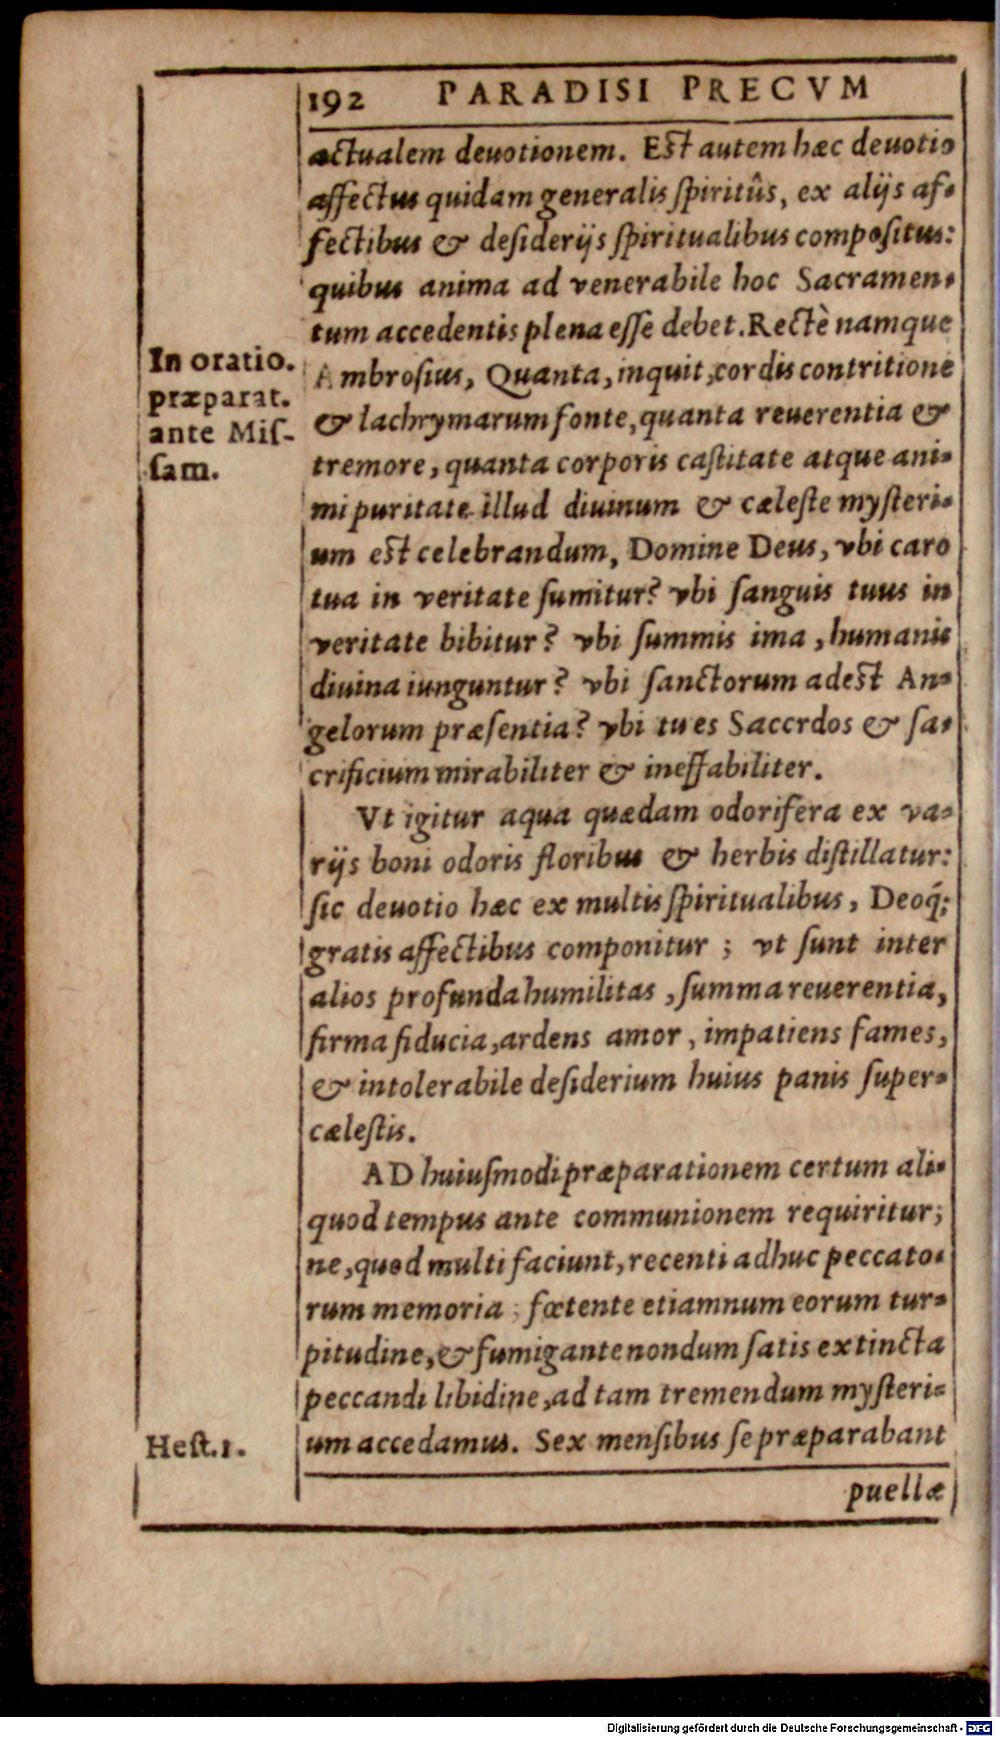 192 PARADISI PRECVM
actualem deuotionem. Est autem hæc deuotio
affectus quidam generalis spiritûs, ex alijs af-
fectibus & desiderijs spiritualibus compositus:
quibus anima ad venerabile hoc Sacramen-
tum accedentis plena esse debet. Rectè namque
In oratio.
præparat.
ante Mis-
sam.
Ambrosius, Quanta, inquit, cordis contritione
& lachrymarum fonte, quanta reuerentia &
tremore, quanta corporis castitate atque ani-
mi puritate illud diuinum & cæleste mysteri-
um est celebrandum, Domine Deus, vbi caro
tua in veritate sumitur? vbi sanguis tuus in
veritate bibitur? vbi summis ima, humanis
diuina iunguntur? vbi sanctorum adest An-
gelorum præsentia? vbi tu es Saccrdos & sa-
crificium mirabiliter & ineffabiliter.
Vt igitur aqua quædam odorifera ex va-
rijs boni odoris floribus & herbis distillatur:
sic deuotio hæc ex multis spiritualibus, Deoq́;
gratis affectibus componitur; vt sunt inter
alios profunda humilitas, summa reuerentia,
firma fiducia, ardens amor, impatiens fames,
& intolerabile desiderium huius panis super-
cælestis.
AD huiusmodi præparationem certum ali-
quod tempus ante communionem requiritur;
ne, quod multi faciunt, recenti adhuc peccato-
rum memoria, fœtente etiamnum eorum tur-
pitudine, & fumigante nondum satis extincta
peccandi libidine, ad tam tremendum mysteri-
um accedamus. Sex mensibus se præparabant
Hest. 1.
puellæ
Digitalisierung gefördert durch die Deutsche Forschungsgemeinschaft - DFG